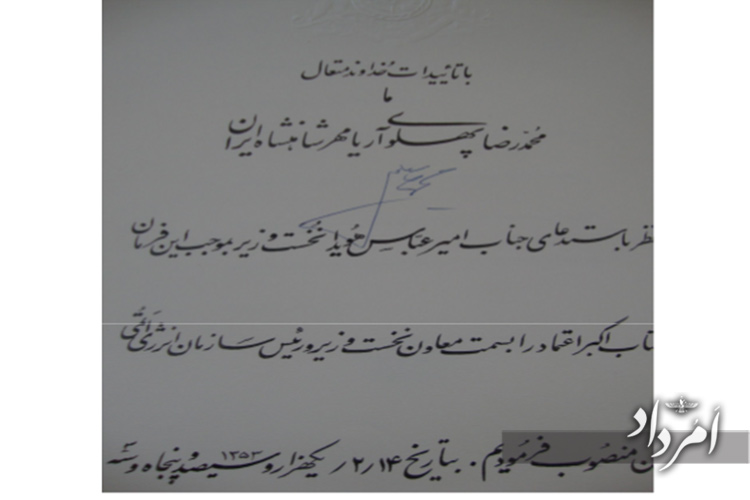 با تائیدات خداوند متعال
ما
محمدرضا پهلوی آریامهر شاهنشاه ایران
نظر باستدعای جناب امیرعباس هویدا نخست وزیر بموجب این فرمان
جناب اکبر اعتماد را بسمت معاون نخست وزیر و رئیس سازمان انرژی اتمی
منصوب فرمودیم . بتاریخ ۲٫۱۴ ر یکهزار و سیصد و پنجاه و سه ۱۳۵۳
اَمُرداد